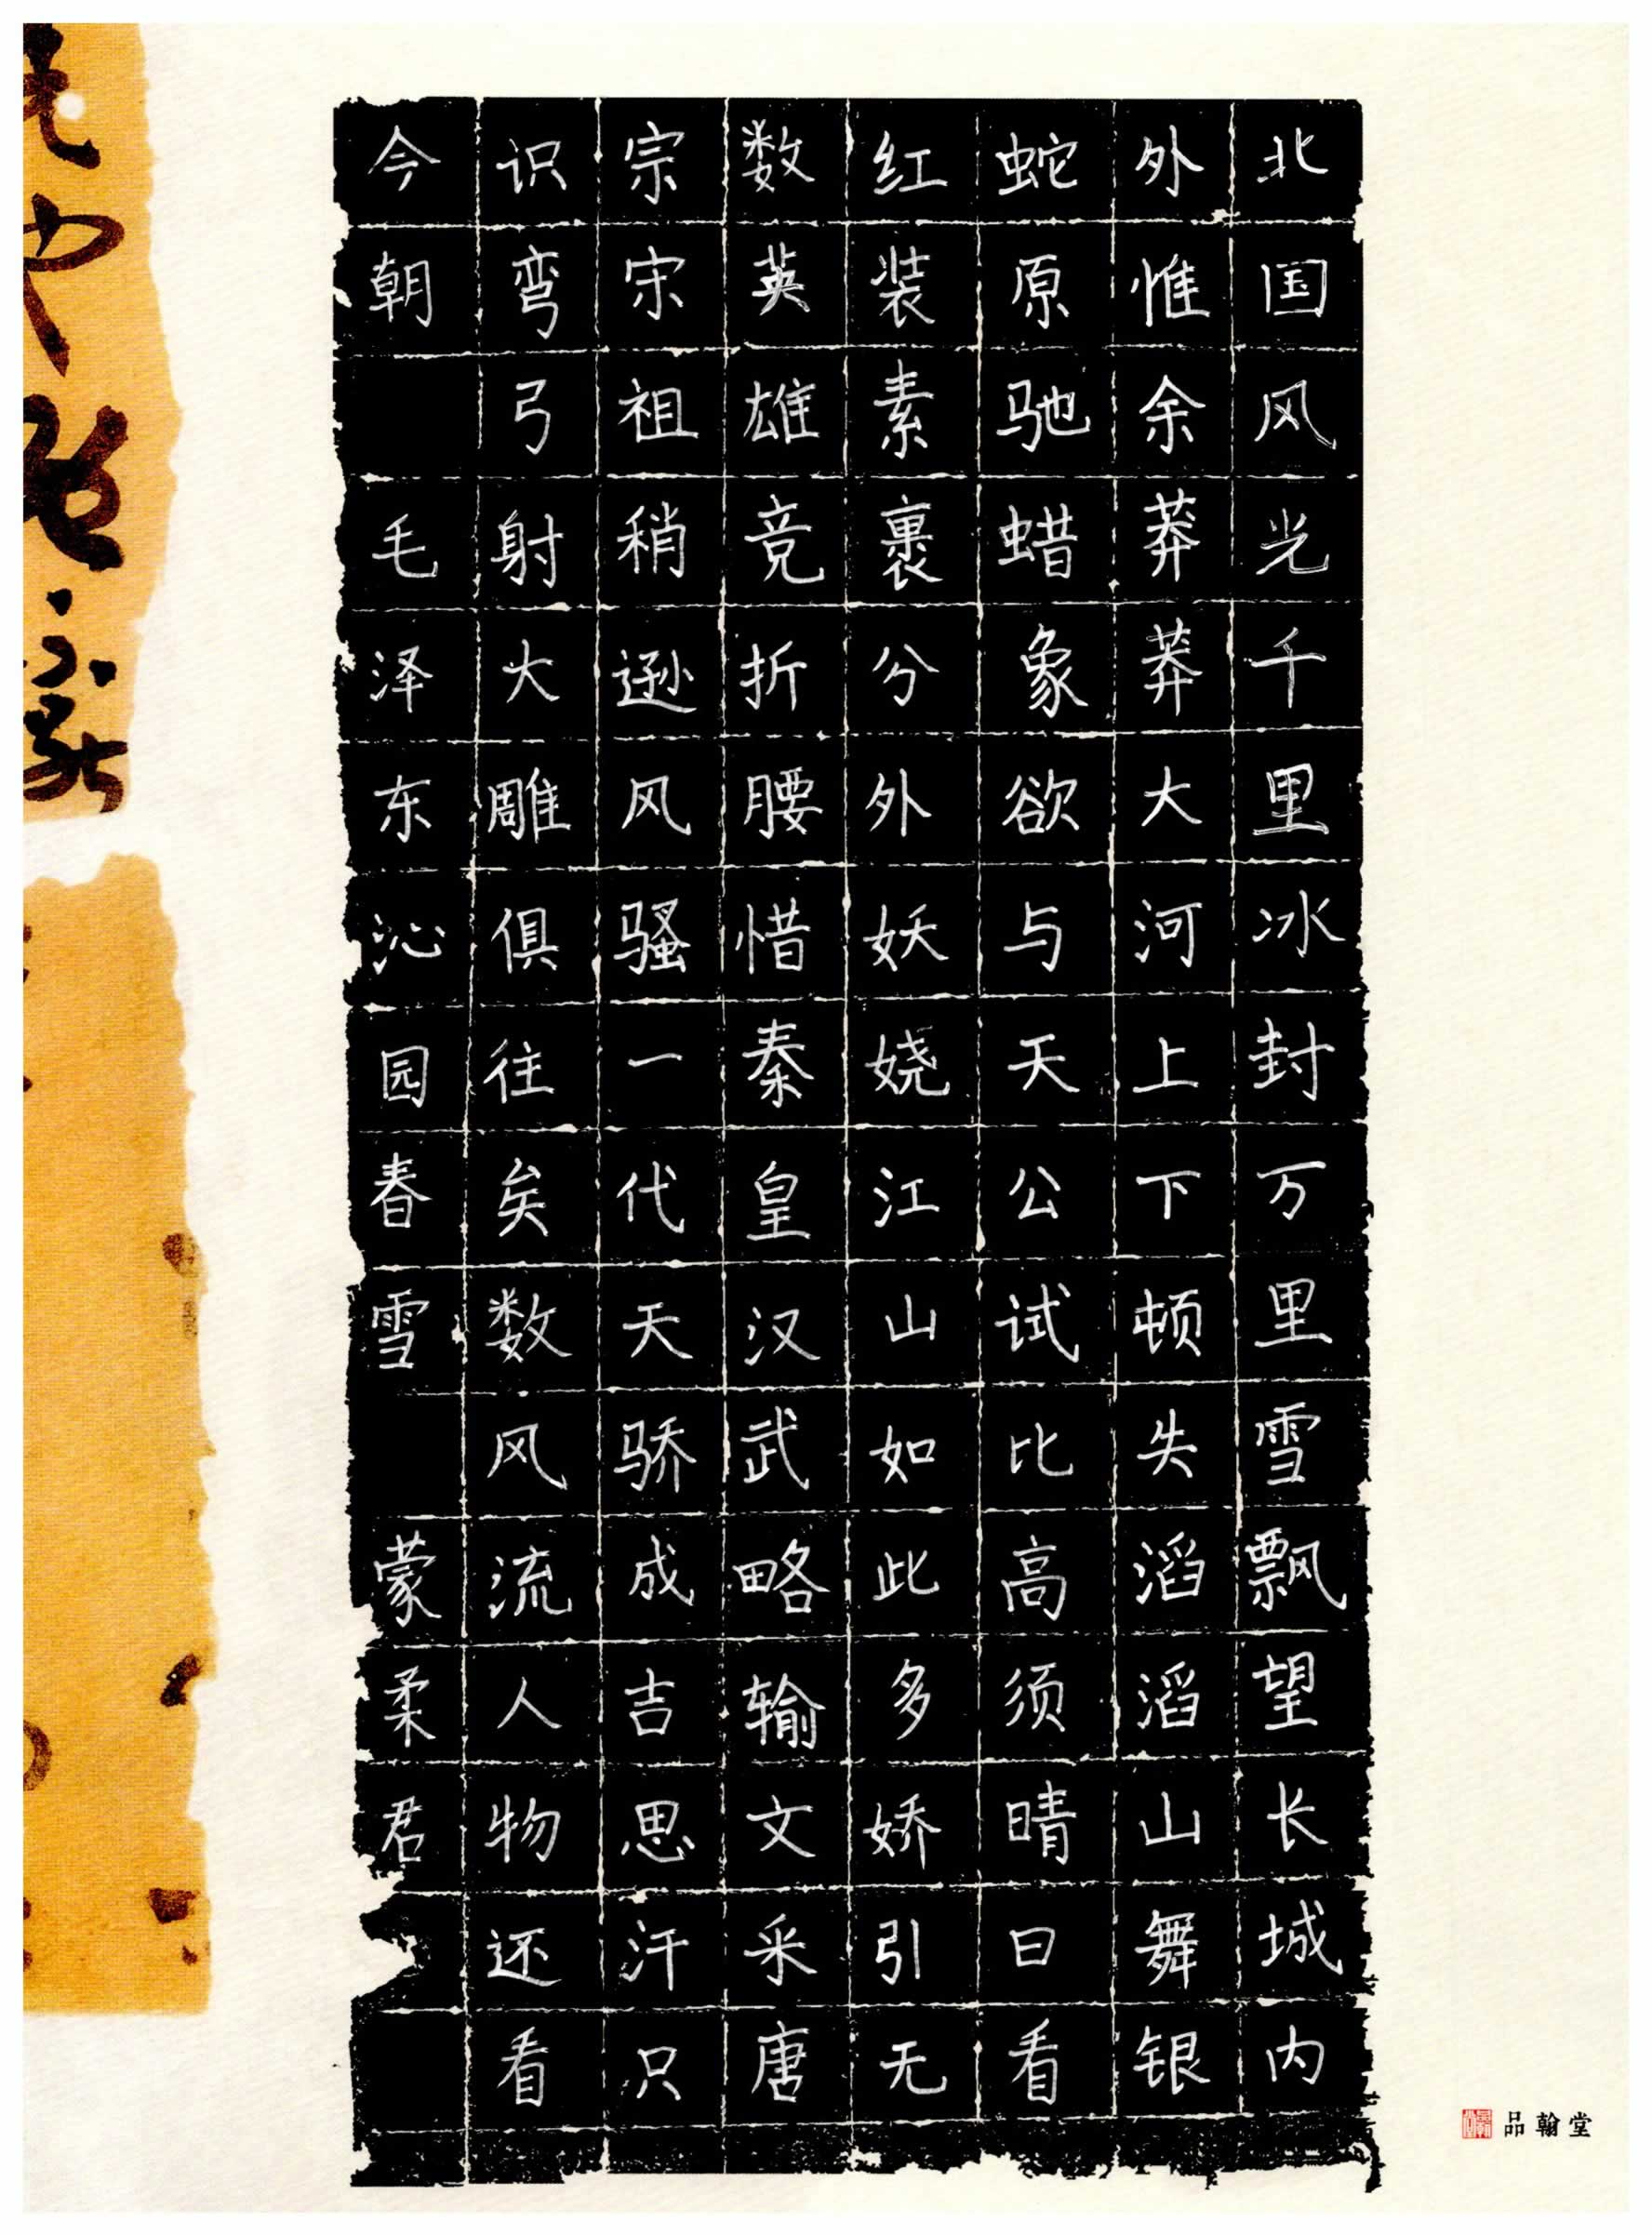 北国风光千里冰封万里雪飘望长城内
外惟余莽莽大河上下顿失滔滔山舞银
蛇原驰蜡象欲与天公试比高须晴日看
红装素裹分外妖娆江山如此多娇引无
数英雄竞折腰惜秦皇汉武略输文采唐
宗宋祖稍逊风骚一代天骄成吉思汗只
识弯弓射大雕俱往矣数风流人物还看
今朝 毛泽东沁园春雪 蒙柔君
品翰堂